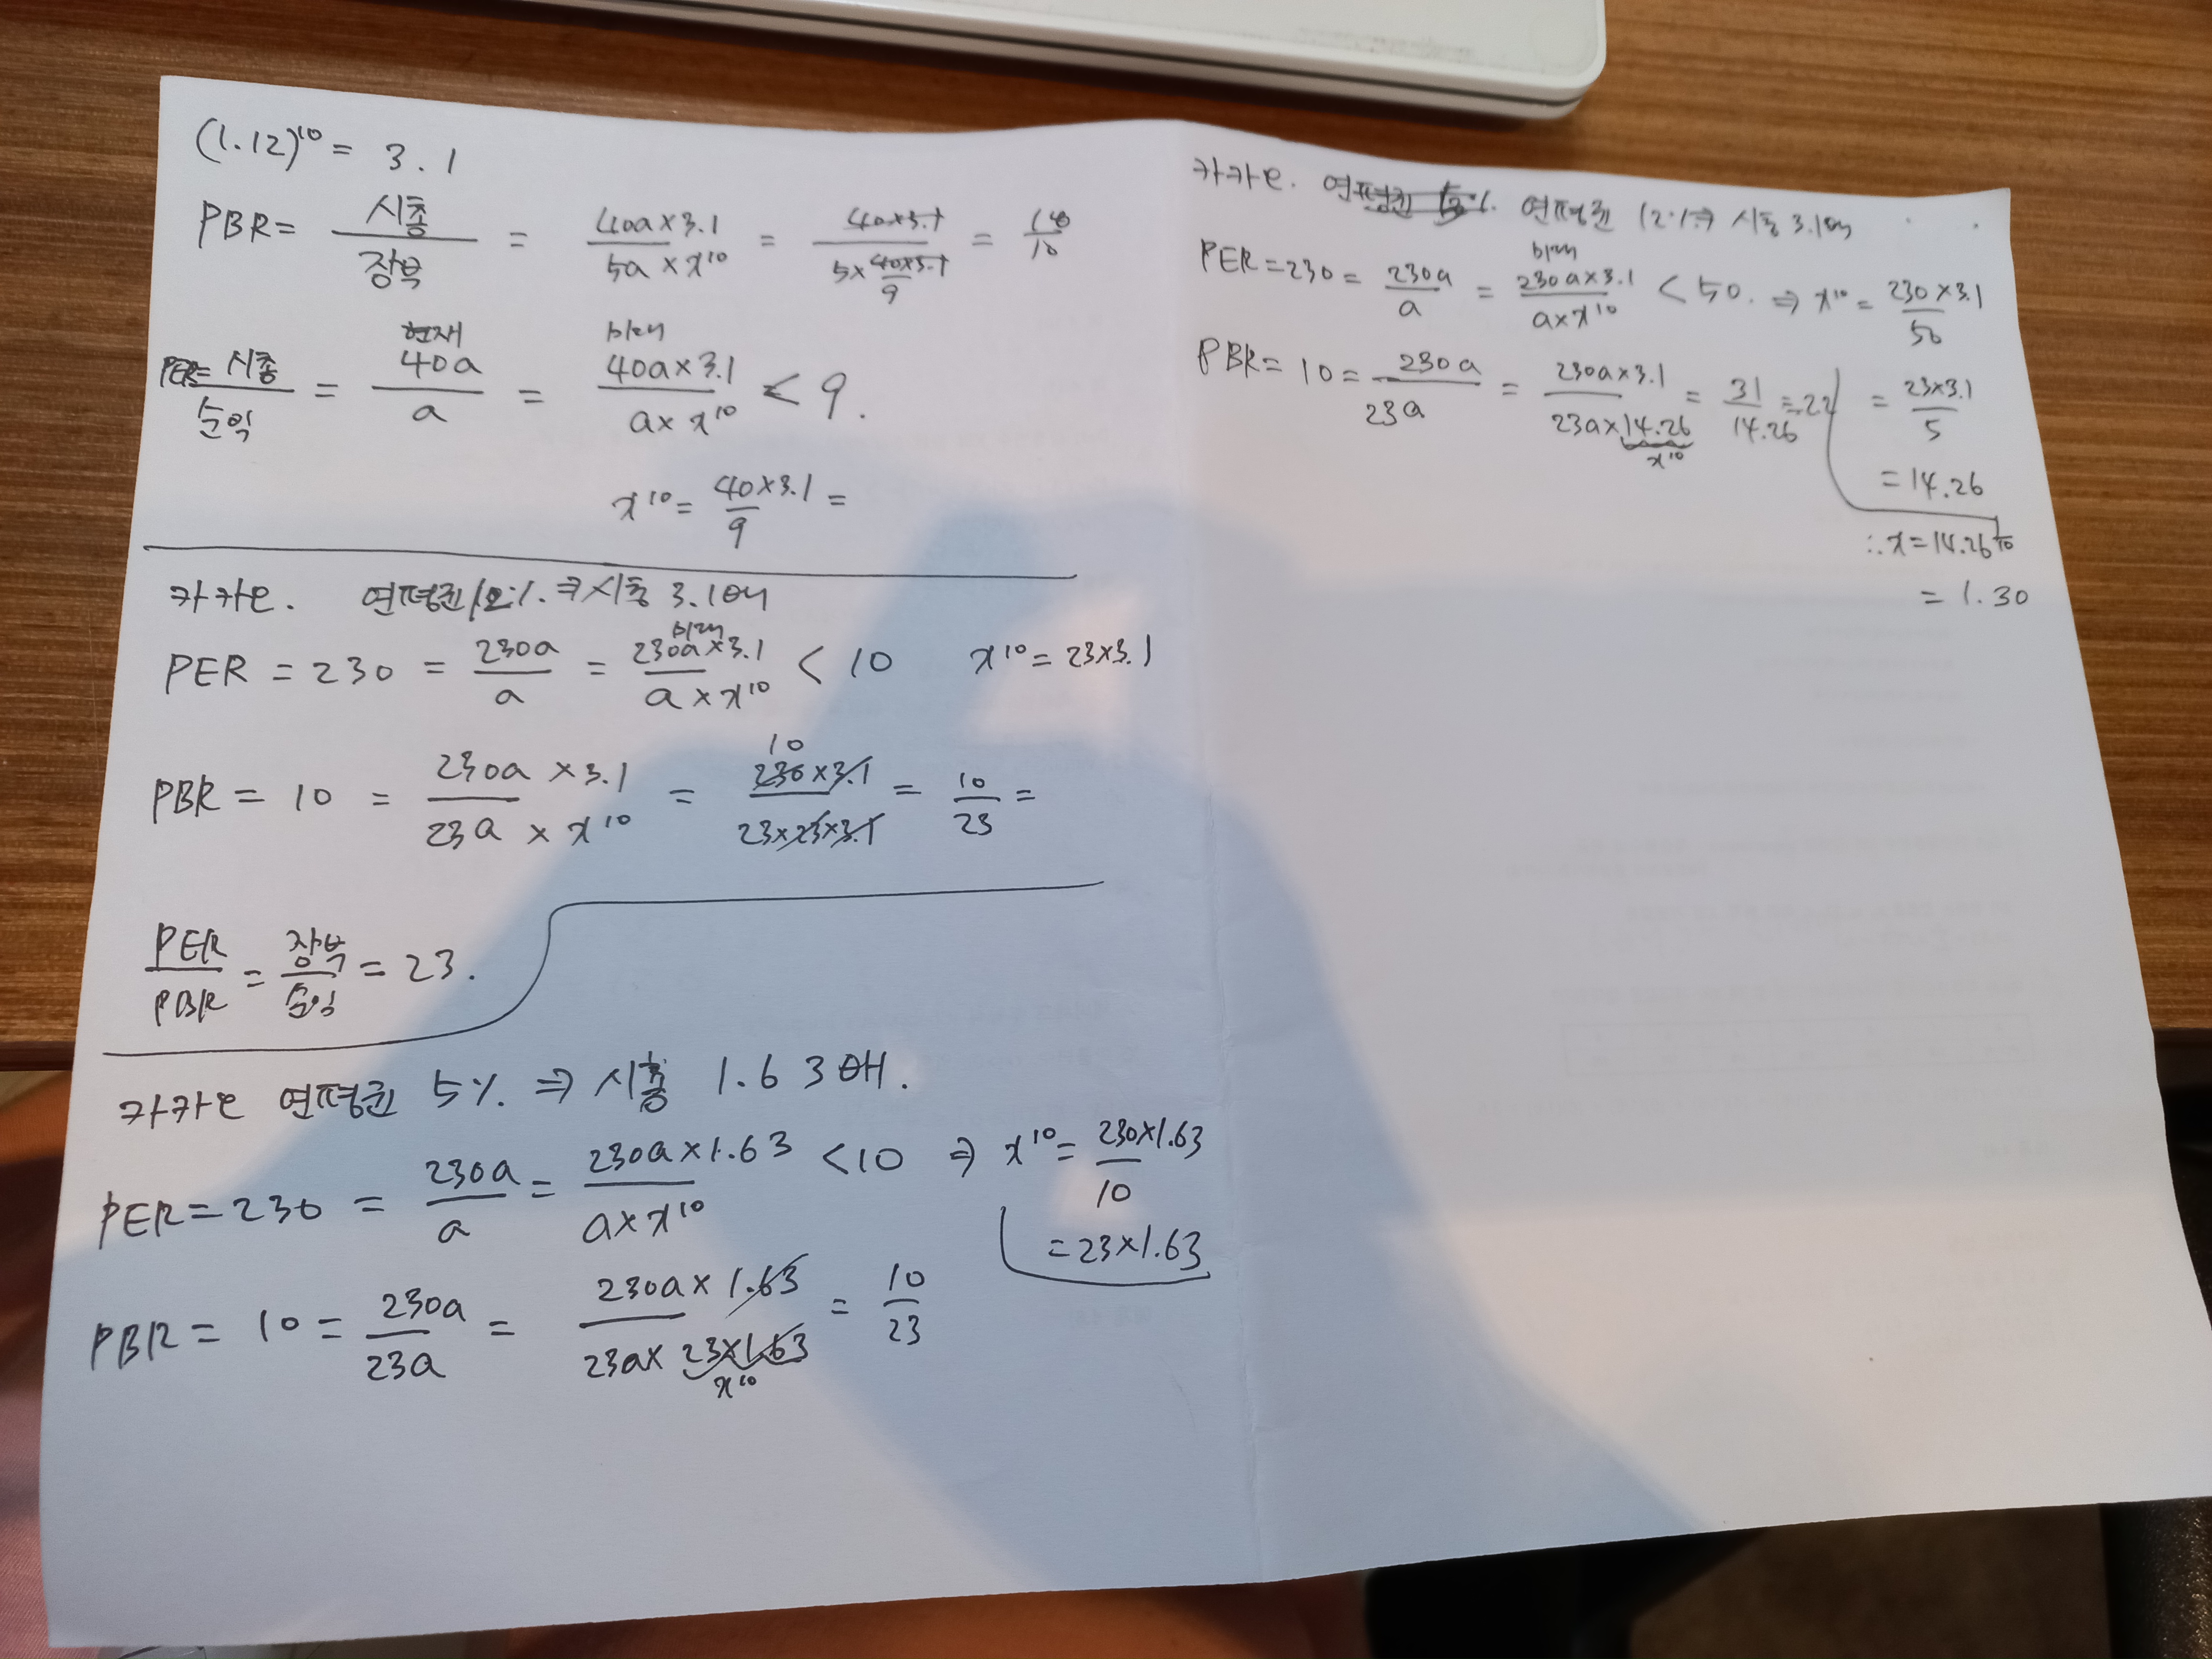 (1.12)¹⁰ = 3.1
PBR = 시총/장부 = 40a×3.1/5a×x¹⁰ = 40×3.1/5×(40×3.1/9) = /10
현재 미래
PER = 시총/순익 = 40a/a = 40a×3.1/a×x¹⁰ < 9.
x¹⁰ = 40×3.1/9 =
카카오. 연평균 12% ⇒ 시총 3.1배
미래
PER = 230 = 230a/a = 230a×3.1/a×x¹⁰ < 10 x¹⁰ = 23×3.1
10
PBR = 10 = 230a×3.1/23a×x¹⁰ = 230×3.1/23×23×3.1 = 10/23 =
PER/PBR = 장부/순익 = 23.
카카오 연평균 5% ⇒ 시총 1.63배.
PER = 230 = 230a/a = 230a×1.63/a×x¹⁰ < 10 ⇒ x¹⁰ = 230×1.63/10
= 23×1.63
PBR = 10 = 230a/23a = 230a×1.63/23a×23×1.63 = 10/23
x¹⁰
카카오. 연평균 연평균 12% ⇒ 시총 3.1배
미래
PER = 230 = 230a/a = 230a×3.1/a×x¹⁰ < 50. ⇒ x¹⁰ = 230×3.1/50
PBR = 10 = 230a/23a = 230a×3.1/23a×14.26 = 31/14.26 = 2.2
x¹⁰
= 23×3.1/5
= 14.26
∴ x = 14.26^(1/10)
= 1.30